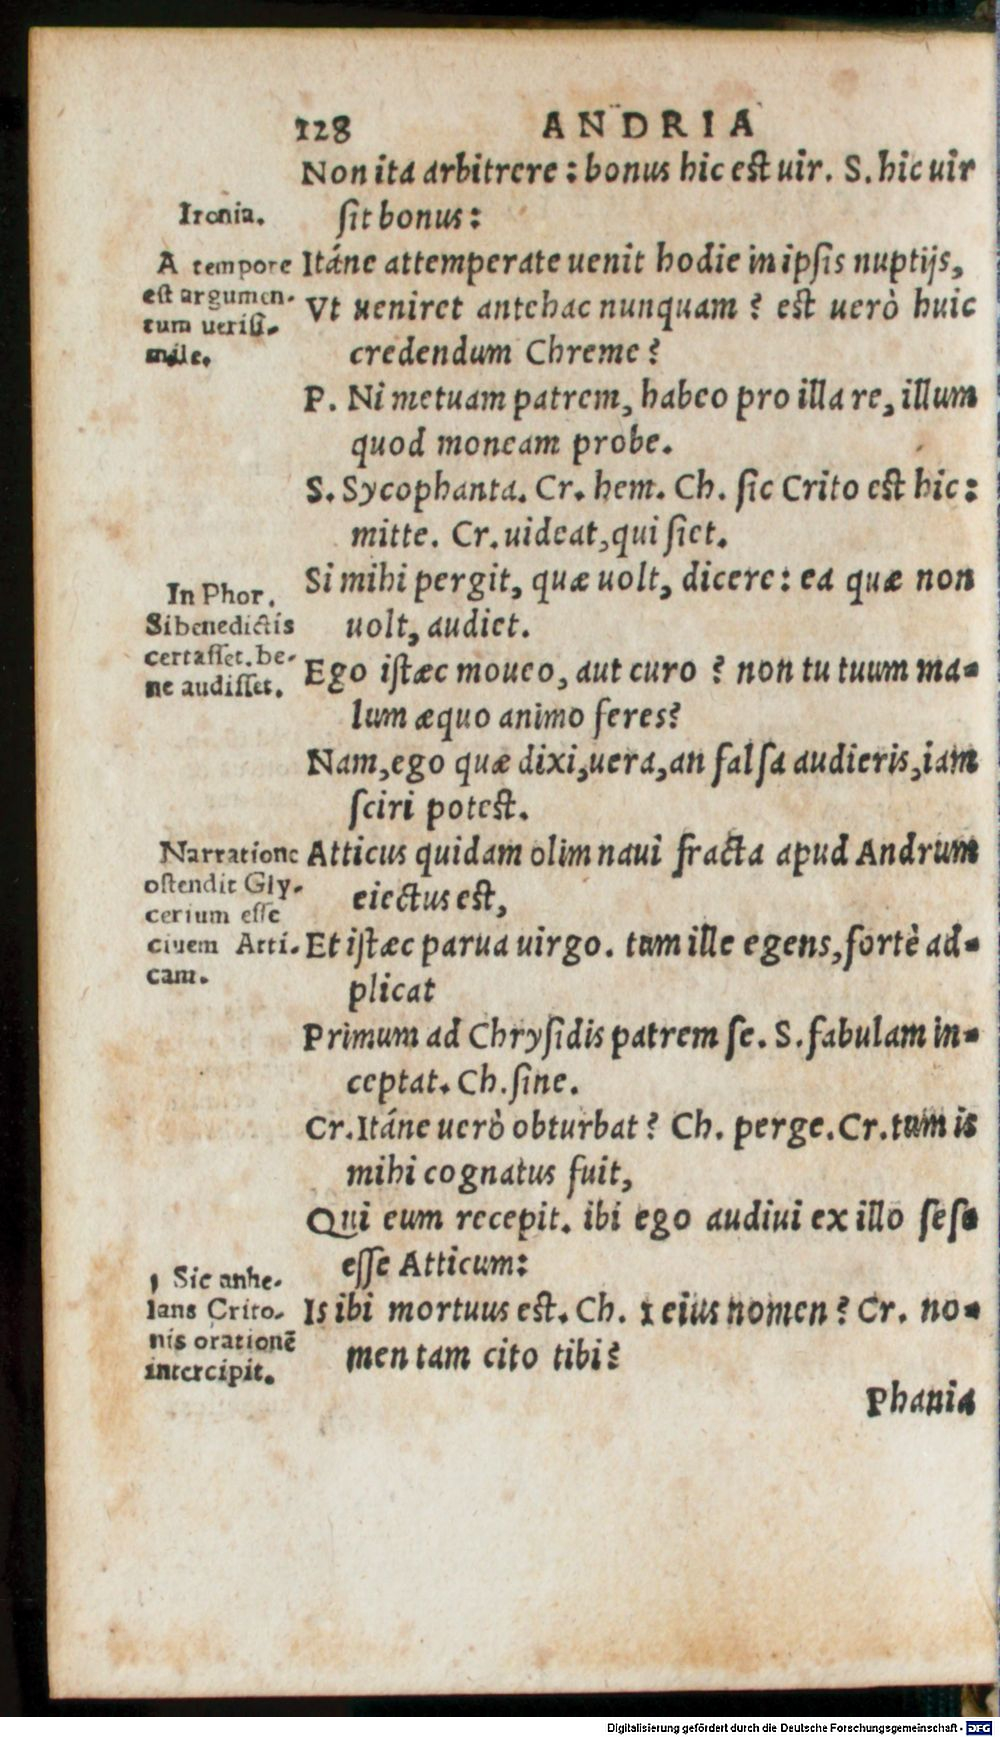 128 ANDRIA
Non ita arbitrere: bonus hic est uir. S. hic uir
sit bonus:
Itáne attemperate uenit hodie in ipsis nuptijs,
Vt ueniret antehac nunquam? est uerò huic
credendum Chreme?
P. Ni metuam patrem, habeo pro illa re, illum
quod moneam probe.
S. Sycophanta. Cr. hem. Ch. sic Crito est hic:
mitte. Cr. uideat, qui siet.
Si mihi pergit, quæ uolt, dicere: ea quæ non
uolt, audiet.
Ego istæc moueo, aut curo? non tu tuum ma-
lum æquo animo feres?
Nam, ego quæ dixi, uera, an falsa audieris, iam
sciri potest.
Atticus quidam olim naui fracta apud Andrum
eiectus est,
Et istæc parua uirgo. tum ille egens, fortè ad-
plicat
Primum ad Chrysidis patrem se. S. fabulam in-
ceptat. Ch. sine.
Cr. Itáne uerò obturbat? Ch. perge. Cr. tum is
mihi cognatus fuit,
Qui eum recepit. ibi ego audiui ex illo sese
esse Atticum:
Is ibi mortuus est. Ch. 1 eius nomen? Cr. no-
men tam cito tibi?
Phania
Ironia.
A tempore
est argumen-
tum uerisi-
mile.
In Phor.
Si benedictis
certasset. be-
ne audisset.
Narratione
ostendit Gly-
cerium esse
ciuem Atti-
cam.
1 Sic anhe-
lans Crito-
nis orationē
intercipit.
Digitalisierung gefördert durch die Deutsche Forschungsgemeinschaft - DFG